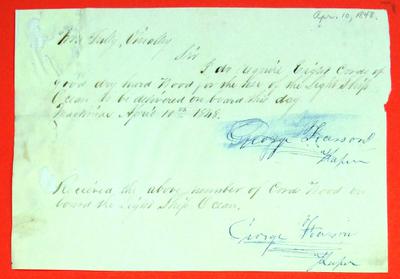 Apr. 10, 1848.
Sir
I do require Eight Cords of
good dry hard Wood for the Use of the Light Ship
Ocean to be delivered on board this day
Mackinac April 10th 1848.
George Pearson
Keeper
Received the above number of Cords Wood on
board the Light Ship Ocean.
George Pearson
Keeper